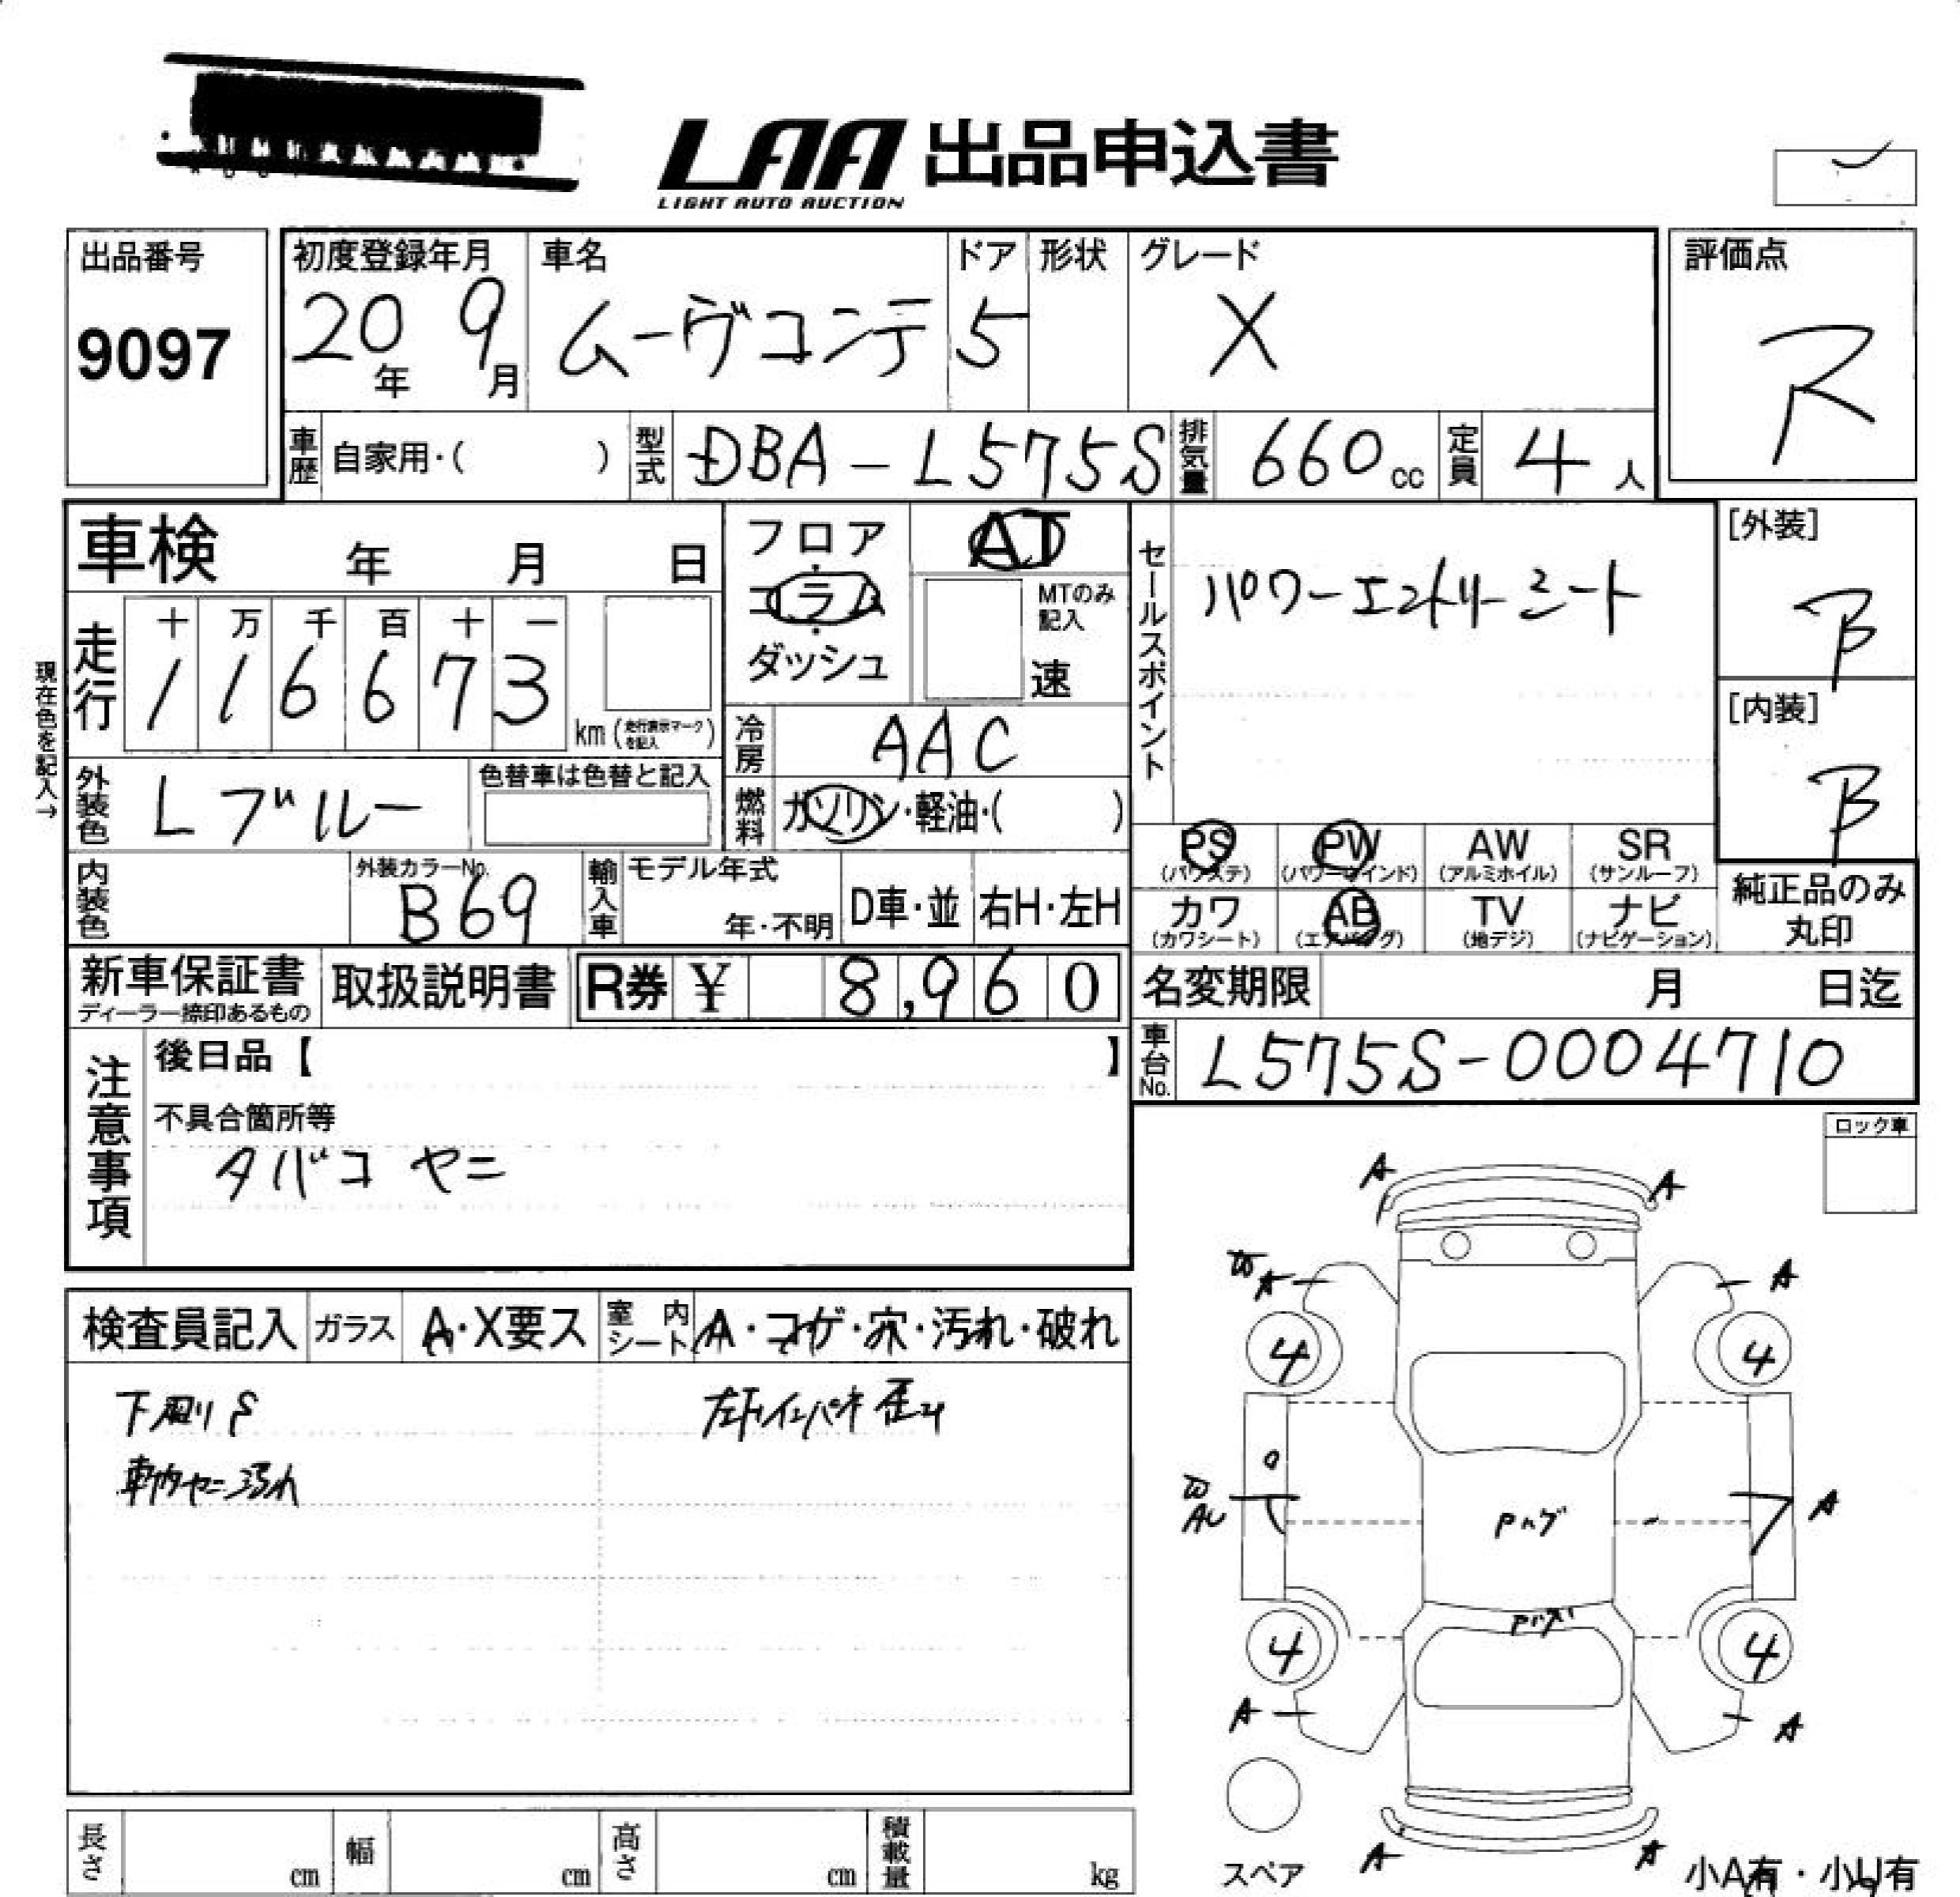 LAA 出品申込書
LIGHT AUTO AUCTION
出品番号
9097
初度登録年月
20年 9月
車名
ムーヴコンテ
ドア
5
形状
グレード
X
評価点
R
車歴 自家用・( )
型式 DBA-L575S
排気量 660cc
定員 4人
車検 年 月 日
現在色を記入→
走行
十 万 千 百 十 一
1 1 6 6 7 3 km (走行表示マークを記入)
フロア・コラム・ダッシュ
AT
MTのみ記入
速
冷房 AAC
燃料 ガソリン・軽油・( )
外装色 Lブルー
色替車は色替と記入
内装色
外装カラーNo.
B69
輸入車
モデル年式
年・不明
D車・並
右H・左H
セールスポイント
パワーエントリーシート
[外装]
B
[内装]
B
PS (パワステ)
PW (パワーウインド)
AW (アルミホイル)
SR (サンルーフ)
カワ (カワシート)
AB (エアバッグ)
TV (地デジ)
ナビ (ナビゲーション)
純正品のみ丸印
新車保証書
ディーラー捺印あるもの
取扱説明書
R券 ¥ 8,960
名変期限 月 日迄
車台No. L575S-0004710
注意事項
後日品【 】
不具合箇所等
タバコ ヤニ
ロック車
検査員記入
ガラス A・X要ス
室内シート A・コゲ・穴・汚れ・破れ
下廻りS
車内ヤニ汚れ
A
A
W
A
A
4
4
W
AU
A
Pハゲ
4
4
A
A
A
A
スペア
小A有・小U有
長さ cm
幅 cm
高さ cm
積載量 kg